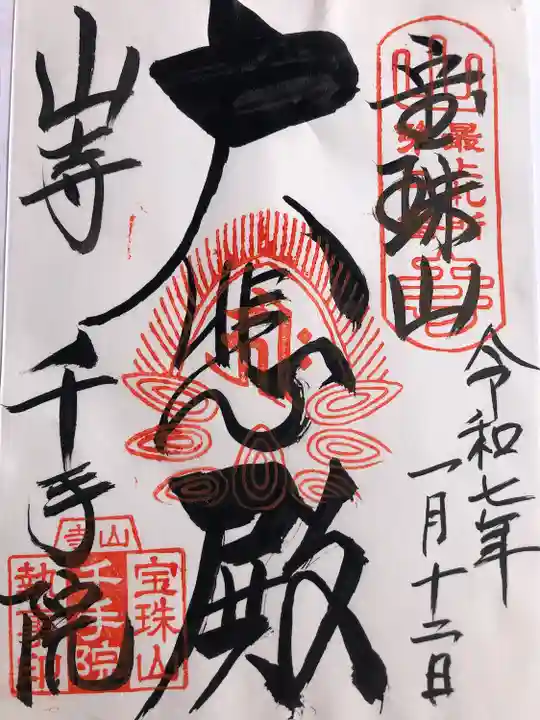 宝珠山
令和七年
一月十二日
大悲殿
山寺 千手院
最上札所
山寺
宝珠山
千手院
執事印